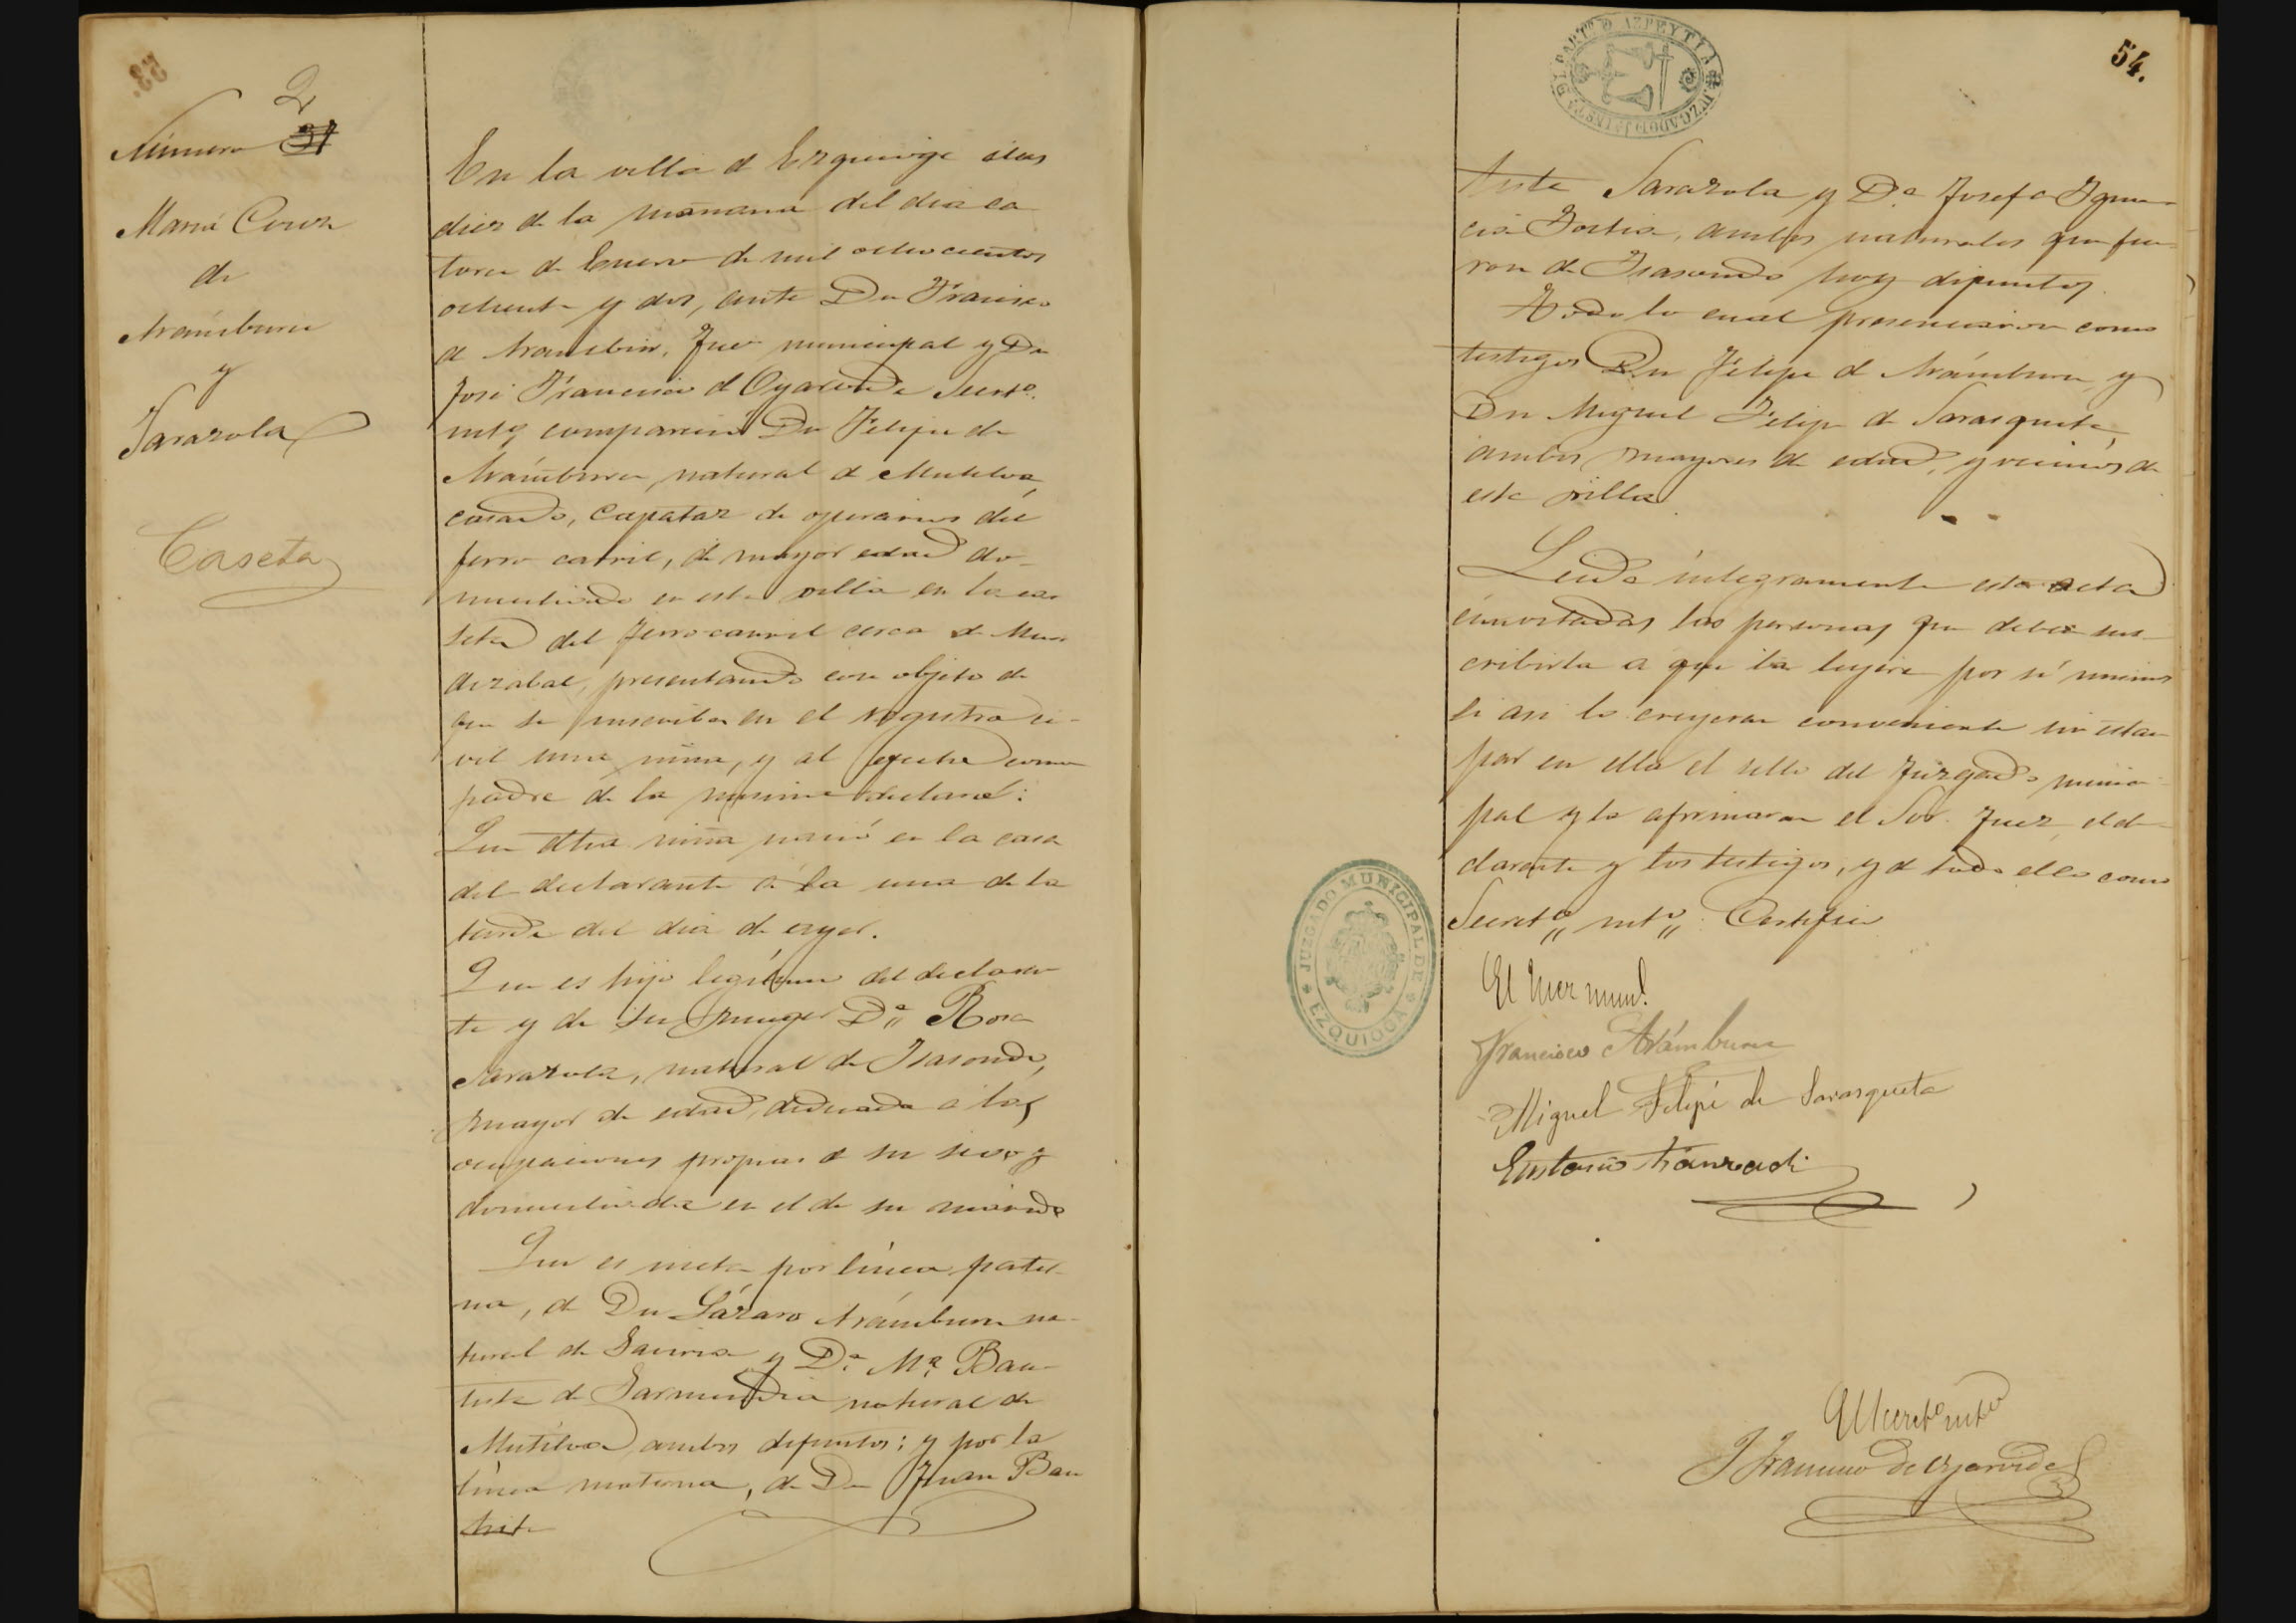 2
Número 31
María Cruz
de
Aramburu
y
Sarazola
Caseta
En la villa d Ezquioga a las
diez de la mañana del dia ca
torce de Enero de mil ochocientos
ochenta y dos, ante Dn Francisco
d Aramburu, Juez municipal y Dn
José Francisco d Oyarvide Secretº.
intº, compareció Dn Felipe de
Arámburu, natural d Mutiloa,
casado, capataz de operarios del
ferro carril, de mayor edad do-
miciliado en esta villa en la ca
seta del ferro-carril cerca de
dizabal, presentando con objeto de
que se inscriba en el registro ci-
vil una niña, y al efecto como
padre de la misma declaró:
Que dha niña nació en la casa
del declarante á la una de la
tarde del dia de ayer.
Que es hija legítima del declaran
te y de su muger Dª Rosa
Sarazola, natural de Isasondo,
mayor de edad, dedicada a las
ocupaciones propias d su sexo y
domiciliada en el de su marido
Que es nieta por línea pater-
na, d Dn Lázaro Arámburu na-
tural de Gaviria y Dª Mª Bau-
tista de Garmendia natural de
Mutiloa, ambos difuntos; y por la
línea materna, de Dn Juan Bau
tista
54.
JUZGADO DE 1ª INSTª DEL PARTº D AZPEYTIA
tista Sarazola y Dª Josefa Igna-
cia, ambos naturales que fue
ron de Isasondo hoy difuntos.
Todo lo cual presenciaron como
testigos Dn Felipe d Arámburu y
Dn Miguel Felipe de Sarasqueta,
ambos mayores de edad, y vecinos de
esta villa
Leida integramente esta acta
é invitadas las personas que deben sus-
cribirla a que la leyeran por sí mismos
si asi lo creyeran conveniente se estam
pó en ella el sello del Juzgado munici
pal y la afirmaron el Sor. Juez, el de-
clarante y los testigos, y d todo ello como
Secretº intº Certifico
JUZGADO MUNICIPAL DE EZQUIOGA
El Juez munl.
Francisco Arámburu
Miguel Felipe de Sarasqueta
El Secretº intº
J Francisco De Oyarvide